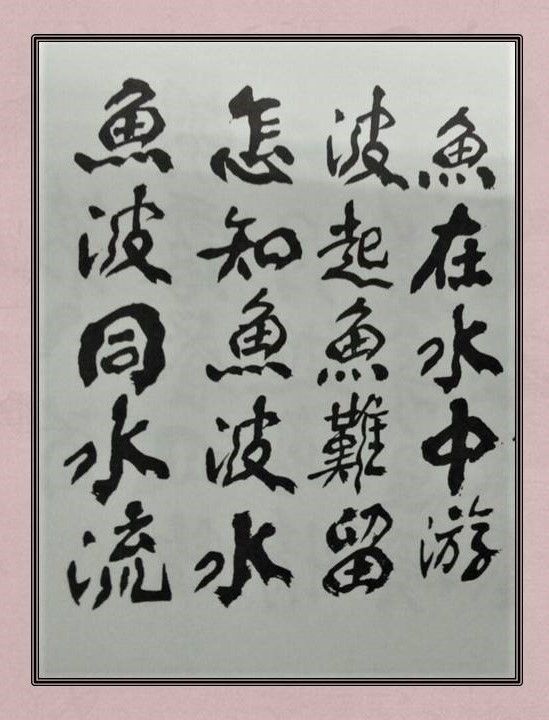 魚在水中游
波起魚難留
怎知魚波水
魚波同水流